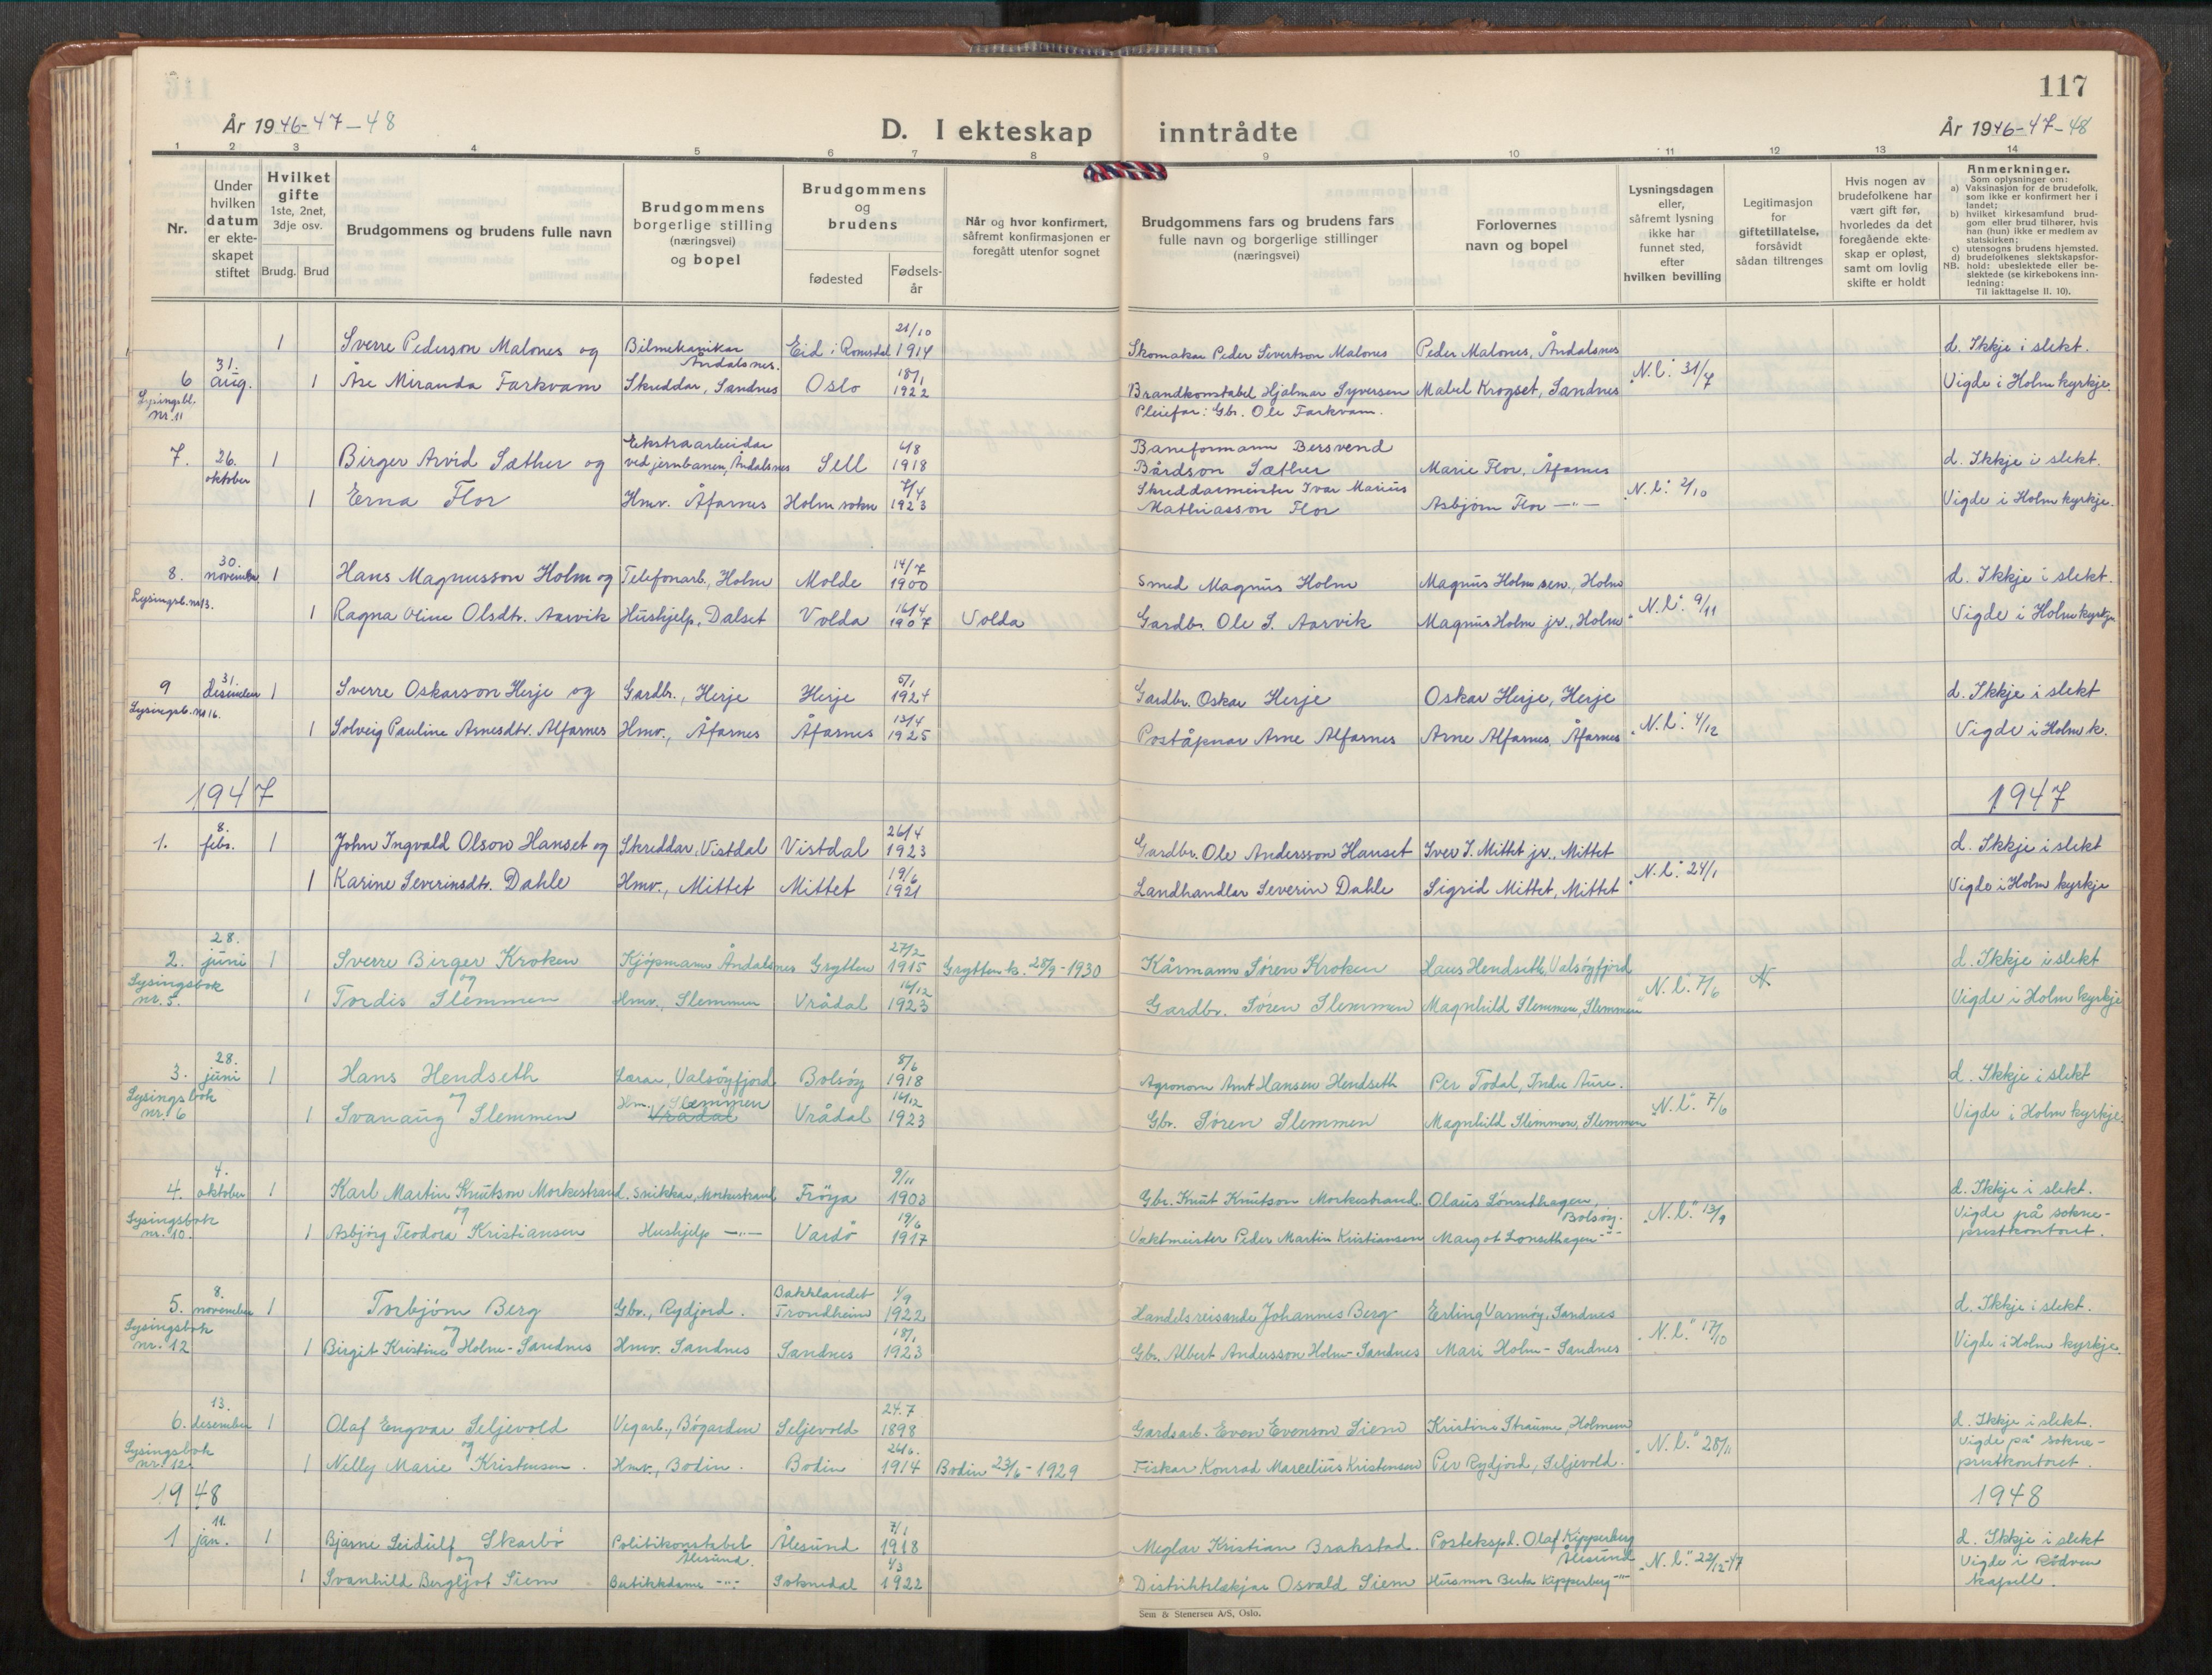 117
År 1946-47-48
D. I ekteskap inntrådte
År 1946-47-48
1 2 3 4 5 6 7 8 9 10 11 12 13 14
Nr.
Under hvilken datum er ekteskapet stiftet
Hvilket gifte 1ste, 2net, 3dje osv.
Brudg. Brud
Brudgommens og brudens fulle navn
Brudgommens borgerlige stilling (næringsvei) og bopel
Brudgommens og brudens
fødested
Fødselsår
Når og hvor konfirmert, såfremt konfirmasjonen er foregått utenfor sognet
Brudgommens fars og brudens fars fulle navn og borgerlige stillinger (næringsvei)
Forlovernes navn og bopel
Lysningsdagen eller, såfremt lysning ikke har funnet sted, efter hvilken bevilling
Legitimasjon for giftetillatelse, forsåvidt sådan tiltrenges
Hvis nogen av brudefolkene har vært gift før, hvorledes da det foregående ekteskap er opløst, samt om lovlig skifte er holdt
Anmerkninger.
Som oplysninger om:
a) Vaksinasjon for de brudefolk, som ikke er konfirmert her i landet;
b) hvilket kirkesamfund brudgom eller brud tilhører, hvis han (hun) ikke er medlem av statskirken;
c) utensogns brudens hjemsted.
d) brudefolkenes slektskapsforhold: ubeslektede eller beslektede (se kirkebokens innledning:
NB.
Til iakttagelse II. 10).
6 31. aug. 1 Sverre Pederson Malones og Bilmekanikar Åndalsnes. Eid i Romsdal 21/10 1914 Skomakar Peder Sivertson Malones Peder Malones, Åndalsnes d. Ikkje i slekt.
Lysingsbl. nr. 11 1 Åse Miranda Farkvam Skreddar, Sandnes Oslo 18/1 1922 Brandkonstabel Hjalmar Syversen Mabel Krogset, Sandnes „N.l.“ 31/7 Vigde i Holm kyrkje.
Pleiefar: Gbr. Ole Farkvam.
7. 26. oktober 1 Birger Arvid Sæther og Ekstraarbeidar ved jernbanen, Åndalsnes Sell 4/8 1918 Baneformann Bersvend Bårdson Sæther Marie Flor, Åfarnes d. Ikkje i slekt.
1 Erna Flor Hmv. Åfarnes Holm sokn 7/4 1923 Skreddarmeister Ivar Marius Mathiasson Flor Asbjørn Flor —"— „N.l.“ 2/10 Vigde i Holm kyrkje.
8. 30. november 1 Hans Magnusson Holm og Telefonarb., Holm Molde 14/7 1900 Smed Magnus Holm Magnus Holm sen., Holm d. Ikkje i slekt.
Lysingsb. nr 13. 1 Ragna Oline Olsdtr. Aarvik Hushjelp, Dalset Volda 16/4 1907 Volda Gardbr. Ole S. Aarvik Magnus Holm jr., Holm „N.l.“ 9/11 Vigde i Holm kyrkje
9 31. desember 1 Sverre Oskarson Herje og Gardbr., Herje Herje 5/1 1924 Gardbr. Oskar Herje Oskar Herje, Herje d. Ikkje i slekt
Lysingsb. nr 16. 1 Solveig Pauline Arnesdtr. Alfarnes Hmv., Åfarnes Åfarnes 13/4 1925 Poståpnar Arne Alfarnes Arne Alfarnes, Åfarnes „N.l.“ 4/12 Vigde i Holm k.
1947 1947
1. 8. febr. 1 John Ingvald Olson Hanset og Skreddar, Vistdal Vistdal 26/4 1923 Gardbr. Ole Andersson Hanset Iver J. Mittet jr., Mittet d. Ikkje i slekt
1 Karine Severinsdtr. Dahle Hmv., Mittet Mittet 19/6 1921 Landhandlar Severin Dahle Sigrid Mittet, Mittet „N.l.“ 24/1 Vigde i Holm kyrkje
2. 28. juni 1 Sverre Birger Kroken og Kjøpmann Åndalsnes Grytten 27/2 1915 Grytten k. 28/9-1930 Kårmann Søren Kroken Hans Hendseth, Valsøyfjord d. Ikkje i slekt
Lysingsbok nr. 5. 1 Tordis Slemmen Hmv., Slemmen Vrådal 16/12 1923 Gardbr. Søren Slemmen Magnhild Slemmen, Slemmen „N.l.“ 7/6 Vigde i Holm kyrkje
3. 28. juni 1 Hans Hendseth og Lærar, Valsøyfjord Bolsøy 8/6 1918 Agronom Arnt Hansen Hendseth Per Todal, Indre Aure. d. Ikkje i slekt
Lysingsbok nr. 6 1 Svanaug Slemmen Hm., Slemmen Vrådal Vrådal 16/12 1923 Gbr. Søren Slemmen Magnhild Slemmen, Slemmen „N.l.“ 7/6 Vigde i Holm kyrkje.
4. 4. oktober 1 Karl Martin Knutson Morkestrand og Snikkar, Morkestrand Frøya 9/11 1903 Gbr. Knut Knutson Morkestrand. Olaus Lønsethagen, Bolsøy. d. Ikkje i slekt.
Lysingsbok nr. 10. 1 Asbjørg Teodora Kristiansen Hushjelp —"— Vardø 19/6 1917 Vaktmeister Peder Martin Kristiansen Margot Lonsethagen —"— „N.l.“ 13/9 Vigde på sokneprestkontoret.
5. 8. november 1 Torbjörn Berg og Gbr., Rydjord. Bakklandet Trondheim 1/9 1922 Handelsreisande Johannes Berg Erling Varnøy, Sandnes d. Ikkje i slekt.
Lysingsbok nr. 12 1 Birgit Kristine Holm-Sandnes Hmv. Sandnes Sandnes 18/1 1923 Gbr. Albert Andersson Holm-Sandnes Mari Holm-Sandnes „N.l.“ 17/10 Vigde i Holm kyrkje.
6. 13. desember 1 Olaf Engvar Seljevold og Vegarb., Bøgarden Seljevold 24.7 1898 Gardsarb. Even Evenson Siem Kristine Straume, Holmem d. Ikkje i slekt.
Lysingsbok nr. 12. 1 Nelly Marie Kristensen. Hmv., Bodin. Bodin 26/6. 1914 Bodin 23/6-1929 Fiskar Konrad Marcelius Kristensen Per Rydjord, Seljevold. „N.l.“ 28/11 Vigde på sokneprestkontoret.
1948 1948
1 11. jan. 1 Bjarne Seidulf Skarbø og Politikonstabel Ålesund. Ålesund 7/1 1918 Meglar Kristian Brakstad. Posteksp. Olaf Kipperberg Ålesund d. Ikkje i slekt
1 Svanhild Bergljot Siem Butikkdame —"— Soknedal 1/3 1922 Distriktslækjar Osvald Siem Husmor Berta Kipperberg —"— „N.l.“ 22/12-47 Vigde i Rødven kapell.
Sem & Stenersen A/S, Oslo.